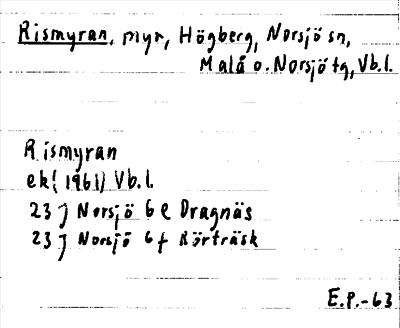 Rismyran, myr, Högberg, Norsjö sn,
Malå o. Norsjö tg, Vb.l.
Rismyran
ek (1961) Vb.l.
23 J Norsjö 6 e Dragnäs
23 J Norsjö 6 f Rörträsk
E.P.-63